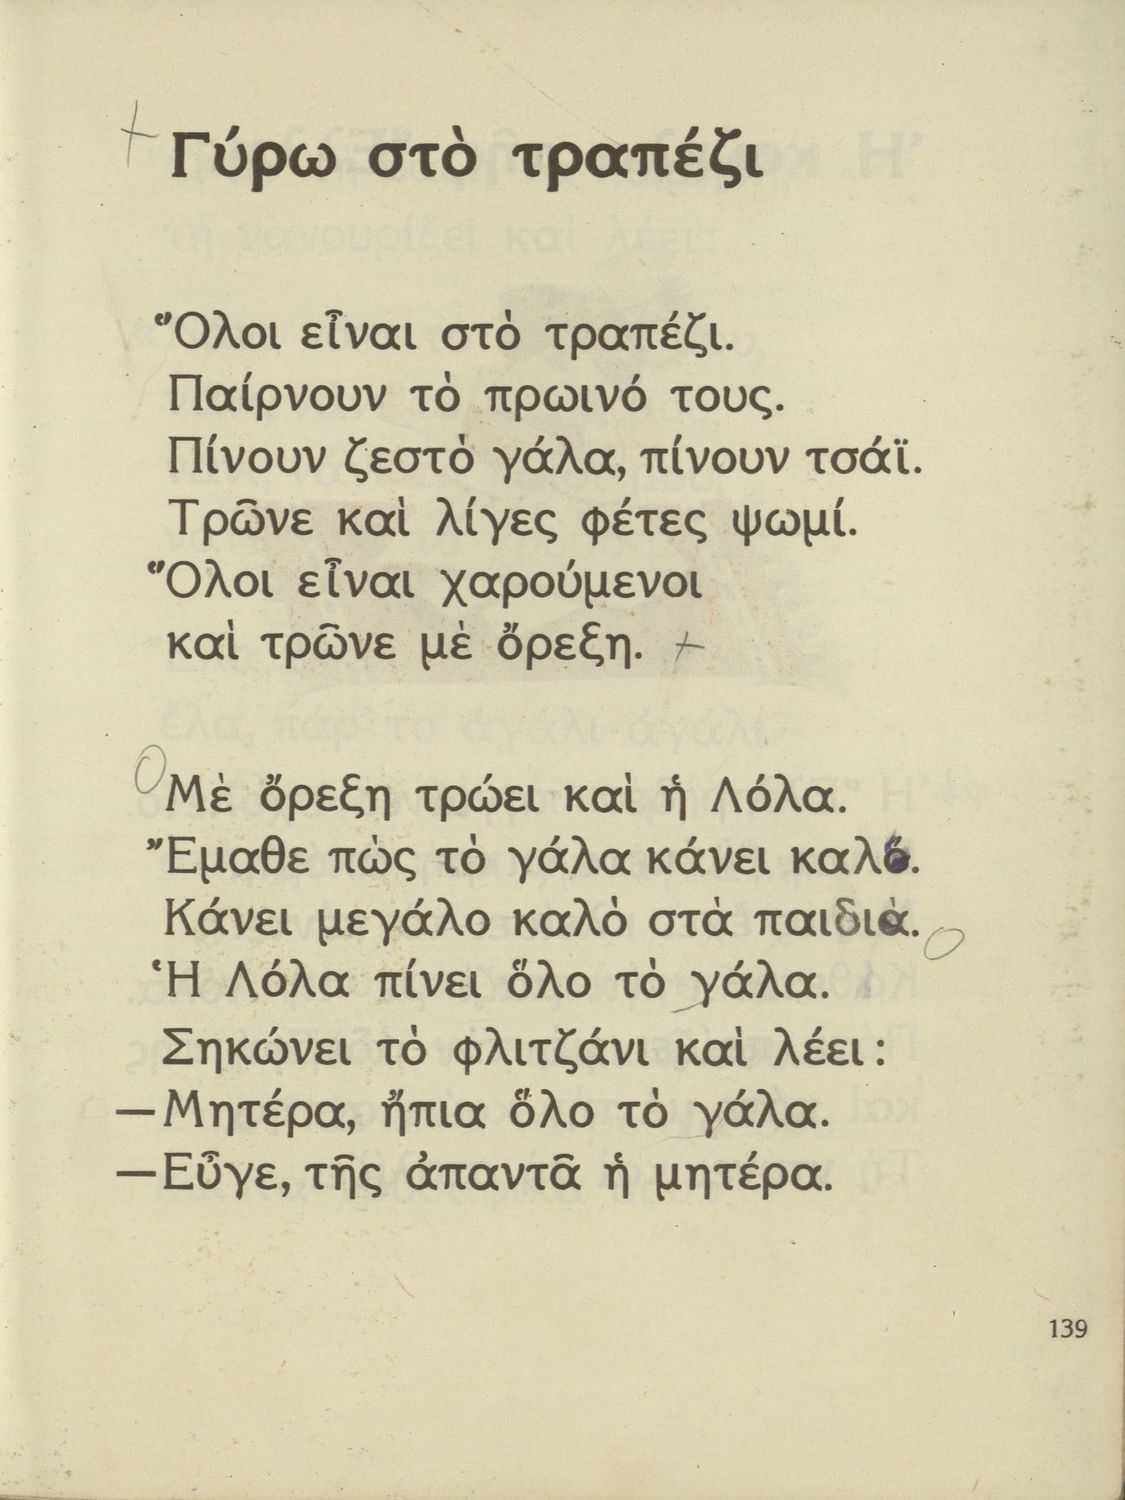 Γύρω στὸ τραπέζι
Ὅλοι εἶναι στὸ τραπέζι.
Παίρνουν τὸ πρωινό τους.
Πίνουν ζεστὸ γάλα, πίνουν τσάϊ.
Τρῶνε καὶ λίγες φέτες ψωμί.
Ὅλοι εἶναι χαρούμενοι
καὶ τρῶνε μὲ ὄρεξη.
Μὲ ὄρεξη τρώει καὶ ἡ Λόλα.
Ἔμαθε πὼς τὸ γάλα κάνει καλό.
Κάνει μεγάλο καλὸ στὰ παιδιά.
Ἡ Λόλα πίνει ὅλο τὸ γάλα.
Σηκώνει τὸ φλιτζάνι καὶ λέει:
—Μητέρα, ἤπια ὅλο τὸ γάλα.
—Εὖγε, τῆς ἀπαντᾶ ἡ μητέρα.
139